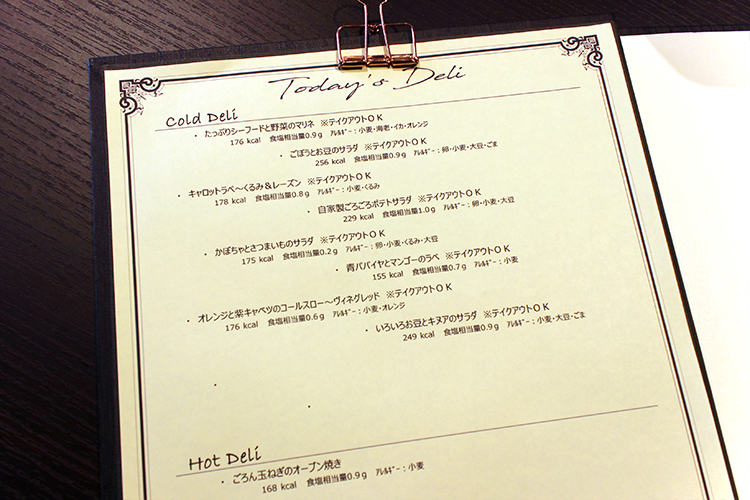 Today's Deli
Cold Deli
・ たっぷりシーフードと野菜のマリネ ※テイクアウトＯＫ
176 kcal 食塩相当量0.9ｇ ｱﾚﾙｷﾞｰ：小麦・海老・イカ・オレンジ
・ ごぼうとお豆のサラダ ※テイクアウトＯＫ
256 kcal 食塩相当量0.9ｇ ｱﾚﾙｷﾞｰ：卵・小麦・大豆・ごま
・ キャロットラペ～くるみ＆レーズン ※テイクアウトＯＫ
178 kcal 食塩相当量0.8ｇ ｱﾚﾙｷﾞｰ：小麦・くるみ
・ 自家製ごろごろポテトサラダ ※テイクアウトＯＫ
229 kcal 食塩相当量1.0ｇ ｱﾚﾙｷﾞｰ：卵・小麦・大豆
・ かぼちゃとさつまいものサラダ ※テイクアウトＯＫ
175 kcal 食塩相当量0.2ｇ ｱﾚﾙｷﾞｰ：卵・小麦・くるみ・大豆
・ 青パパイヤとマンゴーのラペ ※テイクアウトＯＫ
155 kcal 食塩相当量0.7ｇ ｱﾚﾙｷﾞｰ：小麦
・ オレンジと紫キャベツのコールスロー～ヴィネグレッド ※テイクアウトＯＫ
176 kcal 食塩相当量0.6ｇ ｱﾚﾙｷﾞｰ：小麦・オレンジ
・ いろいろお豆とキヌアのサラダ ※テイクアウトＯＫ
249 kcal 食塩相当量0.9ｇ ｱﾚﾙｷﾞｰ：小麦・大豆・ごま
・
・
Hot Deli
・ ごろん玉ねぎのオーブン焼き
168 kcal 食塩相当量0.9ｇ ｱﾚﾙｷﾞｰ：小麦